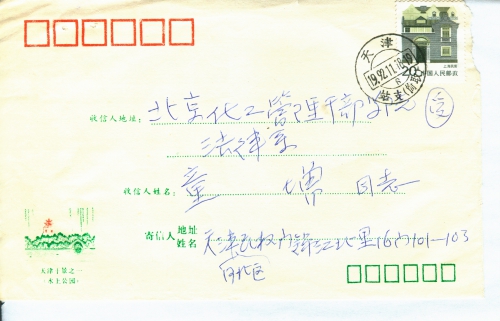 天津
1992.11.18.19
20分 中国人民邮政
收信人地址：北京化工管理干部学院
法律系
收信人姓名：童 增 同志
寄信人地址姓名 天津民权门锦江北里16门101-103
河北区
天津十景之一
(水上公园)